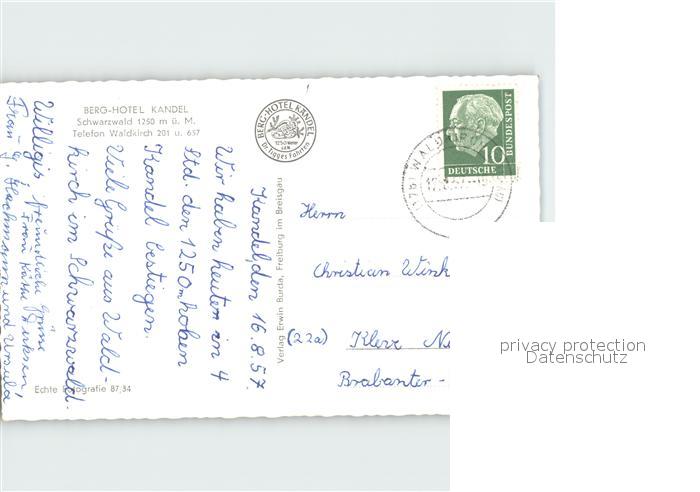 BERG-HOTEL KANDEL
Schwarzwald 1250 m ü. M.
Telefon Waldkirch 201 u. 657
BERG-HOTEL KANDEL
1250 Meter
Kandel, den 16.8.57
Wir haben heute in 4
Std. den 1250m hohen
Kandel bestiegen.
Viele Grüße aus Wald-
kirch im Schwarzwald.
Willigis,
freundliche Grüsse
Frau Käthe
Frau G. und Ursula
Echte Fotografie 87/34
Verlag Erwin Burda, Freiburg im Breisgau
10
DEUTSCHE
BUNDESPOST
(17b) WALDK
Herrn
Christian Wink
(22a) Kleve
Brabanter-
privacy protection
Datenschutz